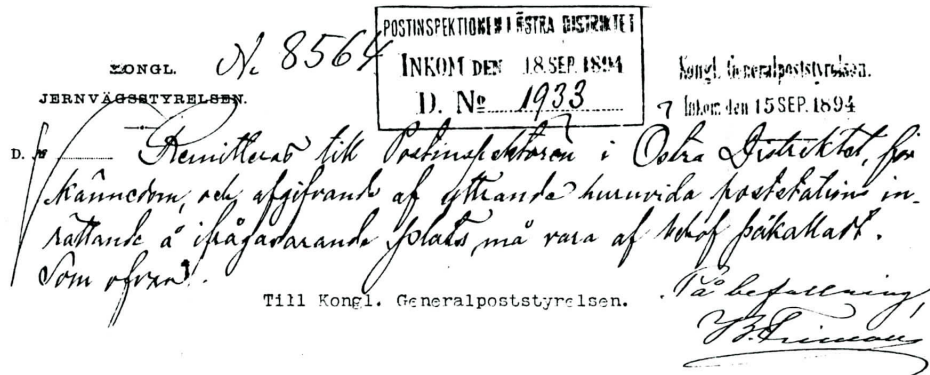 POSTINSPEKTIONEN I ÖSTRA DISTRIKTET
INKOM DEN 18 SEP. 1894
D. № 1933
N. 8564
KONGL.
JERNVÄGSSTYRELSEN.
Kongl. Generalpoststyrelsen.
Inkom den 15 SEP. 1894
D. №
Remitteras till Postinspektoren i Östra Distriktet, för
kännedom, och afgifvande af yttrande huruvida poststations in-
rättande å ifrågavarande plats, må vara af behof påkalladt.
Som ofvan.
Till Kongl. Generalpoststyrelsen.
På befallning,